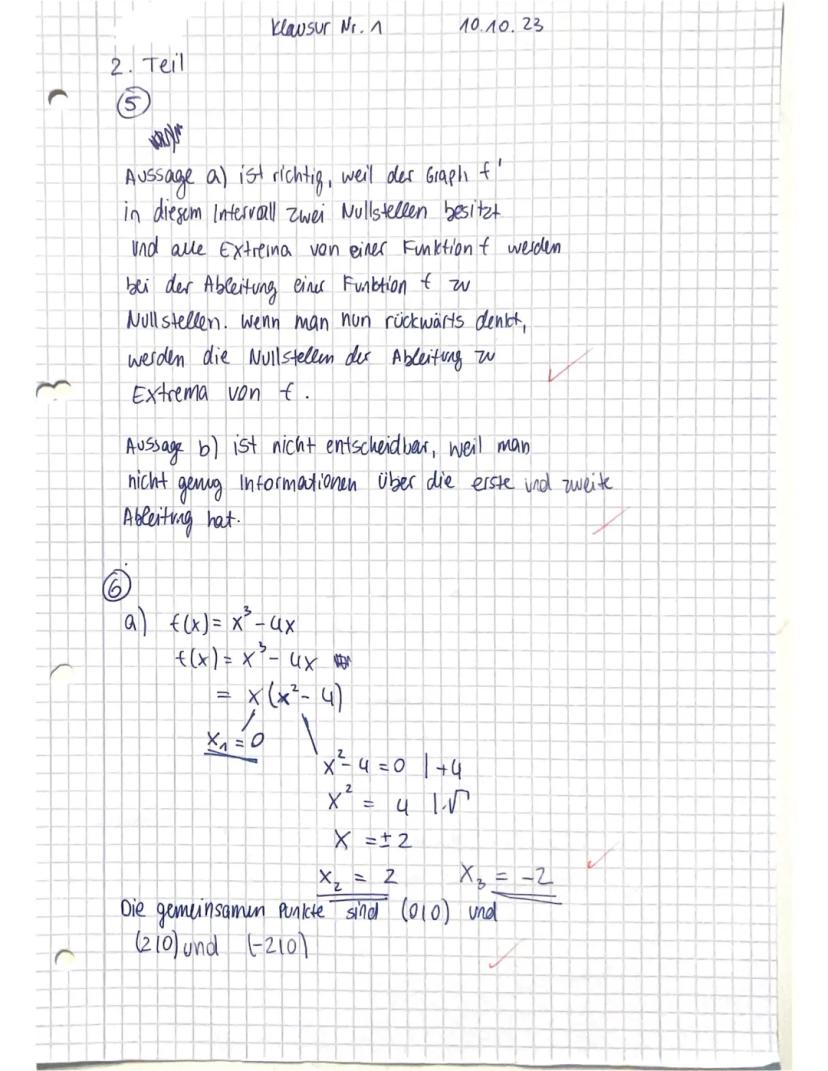 Klausur Nr. 1 10.10.23
2. Teil
5
Aussage a) ist richtig, weil der Graph f'
in diesem Intervall zwei Nullstellen besitzt
und alle Extrema von einer Funktion f werden
bei der Ableitung einer Funktion f zu
Nullstellen. Wenn man nun rückwärts denkt,
werden die Nullstellen der Ableitung zu
Extrema von f.
Aussage b) ist nicht entscheidbar, weil man
nicht genug Informationen über die erste und zweite
Ableitung hat.
6
a) f(x) = x³ - 4x
f(x) = x³ - 4x
= x(x² - 4)
x₁ = 0
x² - 4 = 0 | +4
x² = 4 | √
x = ±2
x₂ = 2 x₃ = -2
Die gemeinsamen Punkte sind (0|0) und
(2|0) und (-2|0)